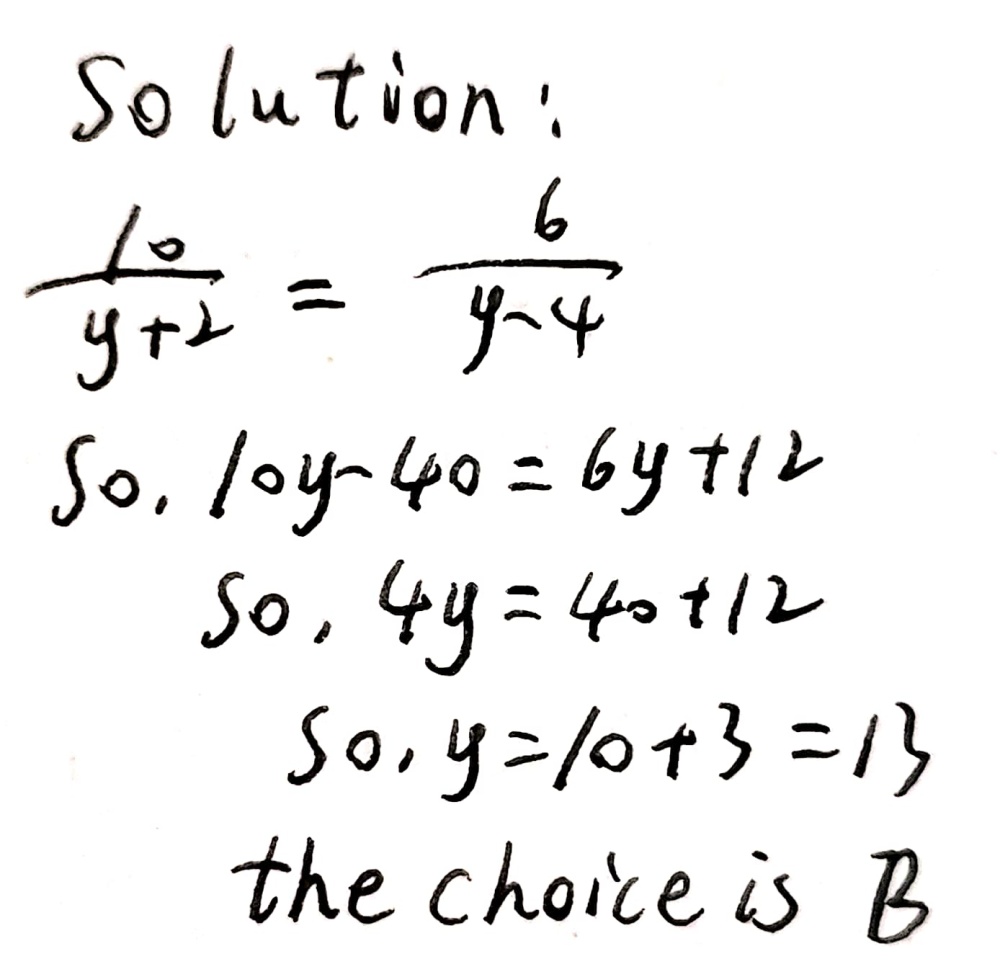 Solution:
10/(y+2) = 6/(y-4)
So, 10y-40=6y+12
So, 4y=40+12
So, y=10+3=13
the choice is B